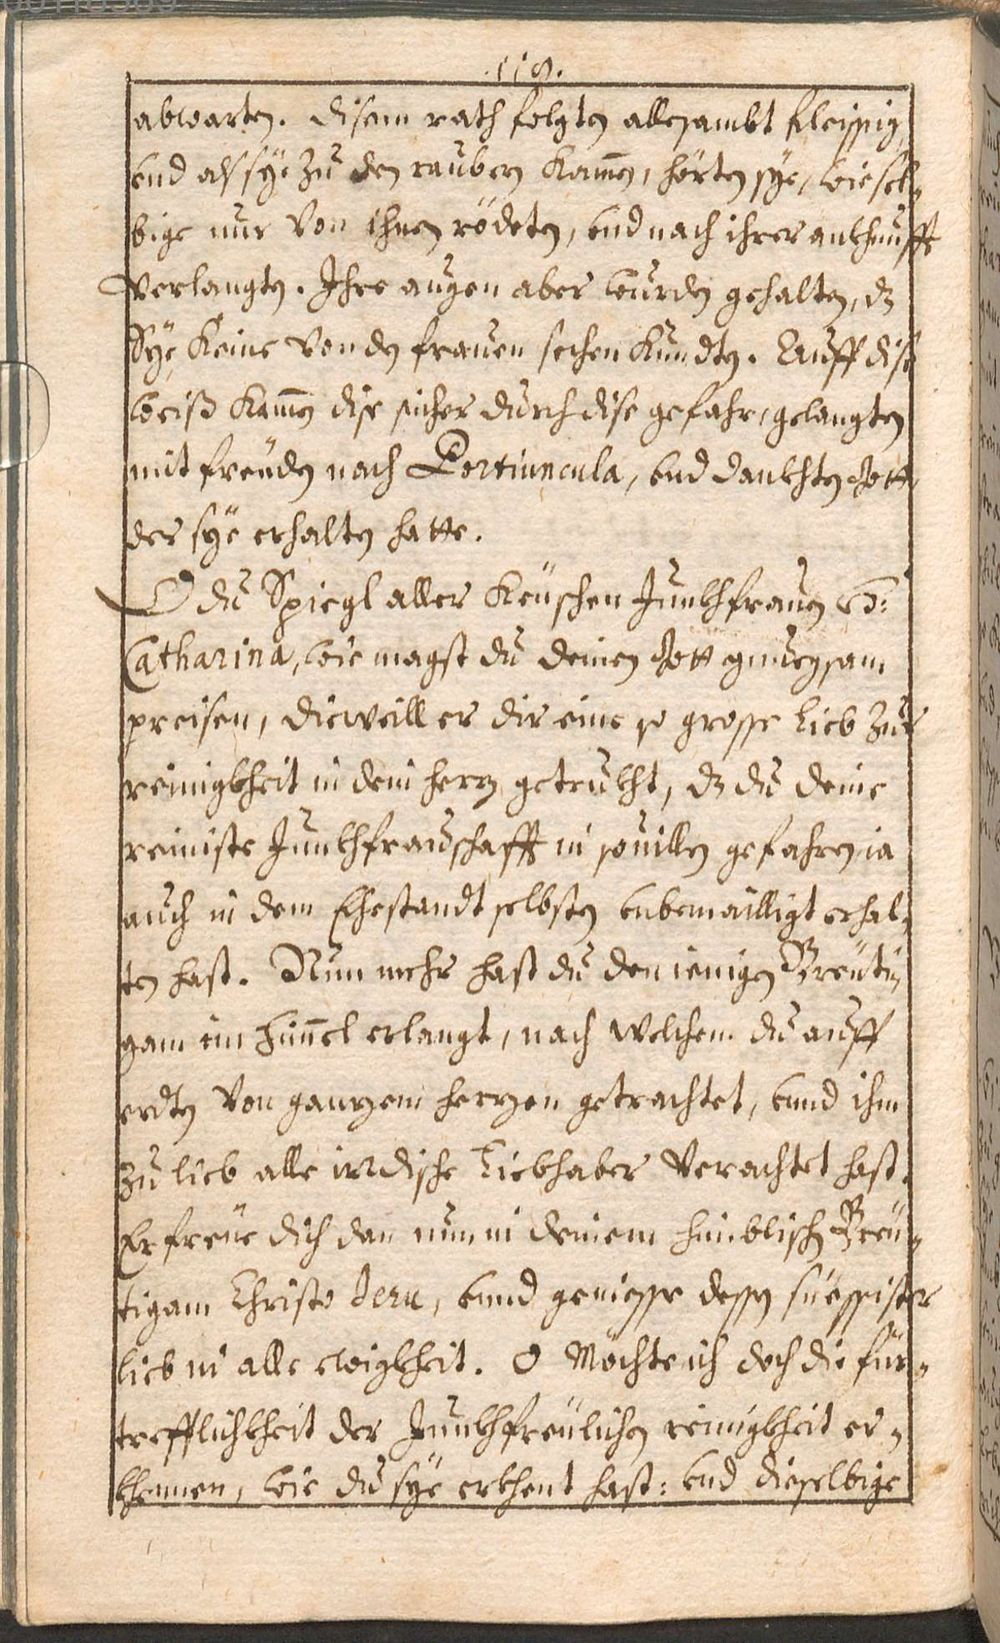 .118.
abwarten. Disem rath folgten allesambt fleissig,
und als sÿe zu den raubern kamen, hörten sÿe, wie sel-
bige nur von ihnen rödeten, und nach ihrer ankhunfft
verlangten. Ihre augen aber wurden gehalten, dz
Sÿe keine von den frauen sechen kundten. Auff dise
weiß kamen dise sicher durch dise gefahr, gelangten
mit freuden nach Portiuncula, und dankhten Gott,
der sÿe erhalten hatte.
O du Spiegl aller keuschen Junkhfrauen S:
Catharina, wie magst du deinen Gott gnuegsam
preisen, dieweill er dir eine so grosse lieb zur
reinigkheit in dein herz getrukht, dz du deine
reiniste Junkhfrauschafft in souillen gefahren ia
auch in dem Ehestandt selbsten unbemailligt erhal-
ten hast. Nun mehr hast du den ienigen Breüti-
gam im himel erlangt, nach welchem du auff
erdten von ganzem herzen getrachtet, vnnd ihm
zu lieb alle irrdische Liebhaber verachtet hast.
Erfreüe dich dan nun in deinem himblischen Breü-
tigam Christo Jesu, vnnd geniesse dessen süessister
lieb in alle ewigkheit. O Möchte ich doch die für-
trefflichkheit der Junkhfreülichen reinigkheit er-
khennen, wie du sÿe erkhent hast: und dieselbige